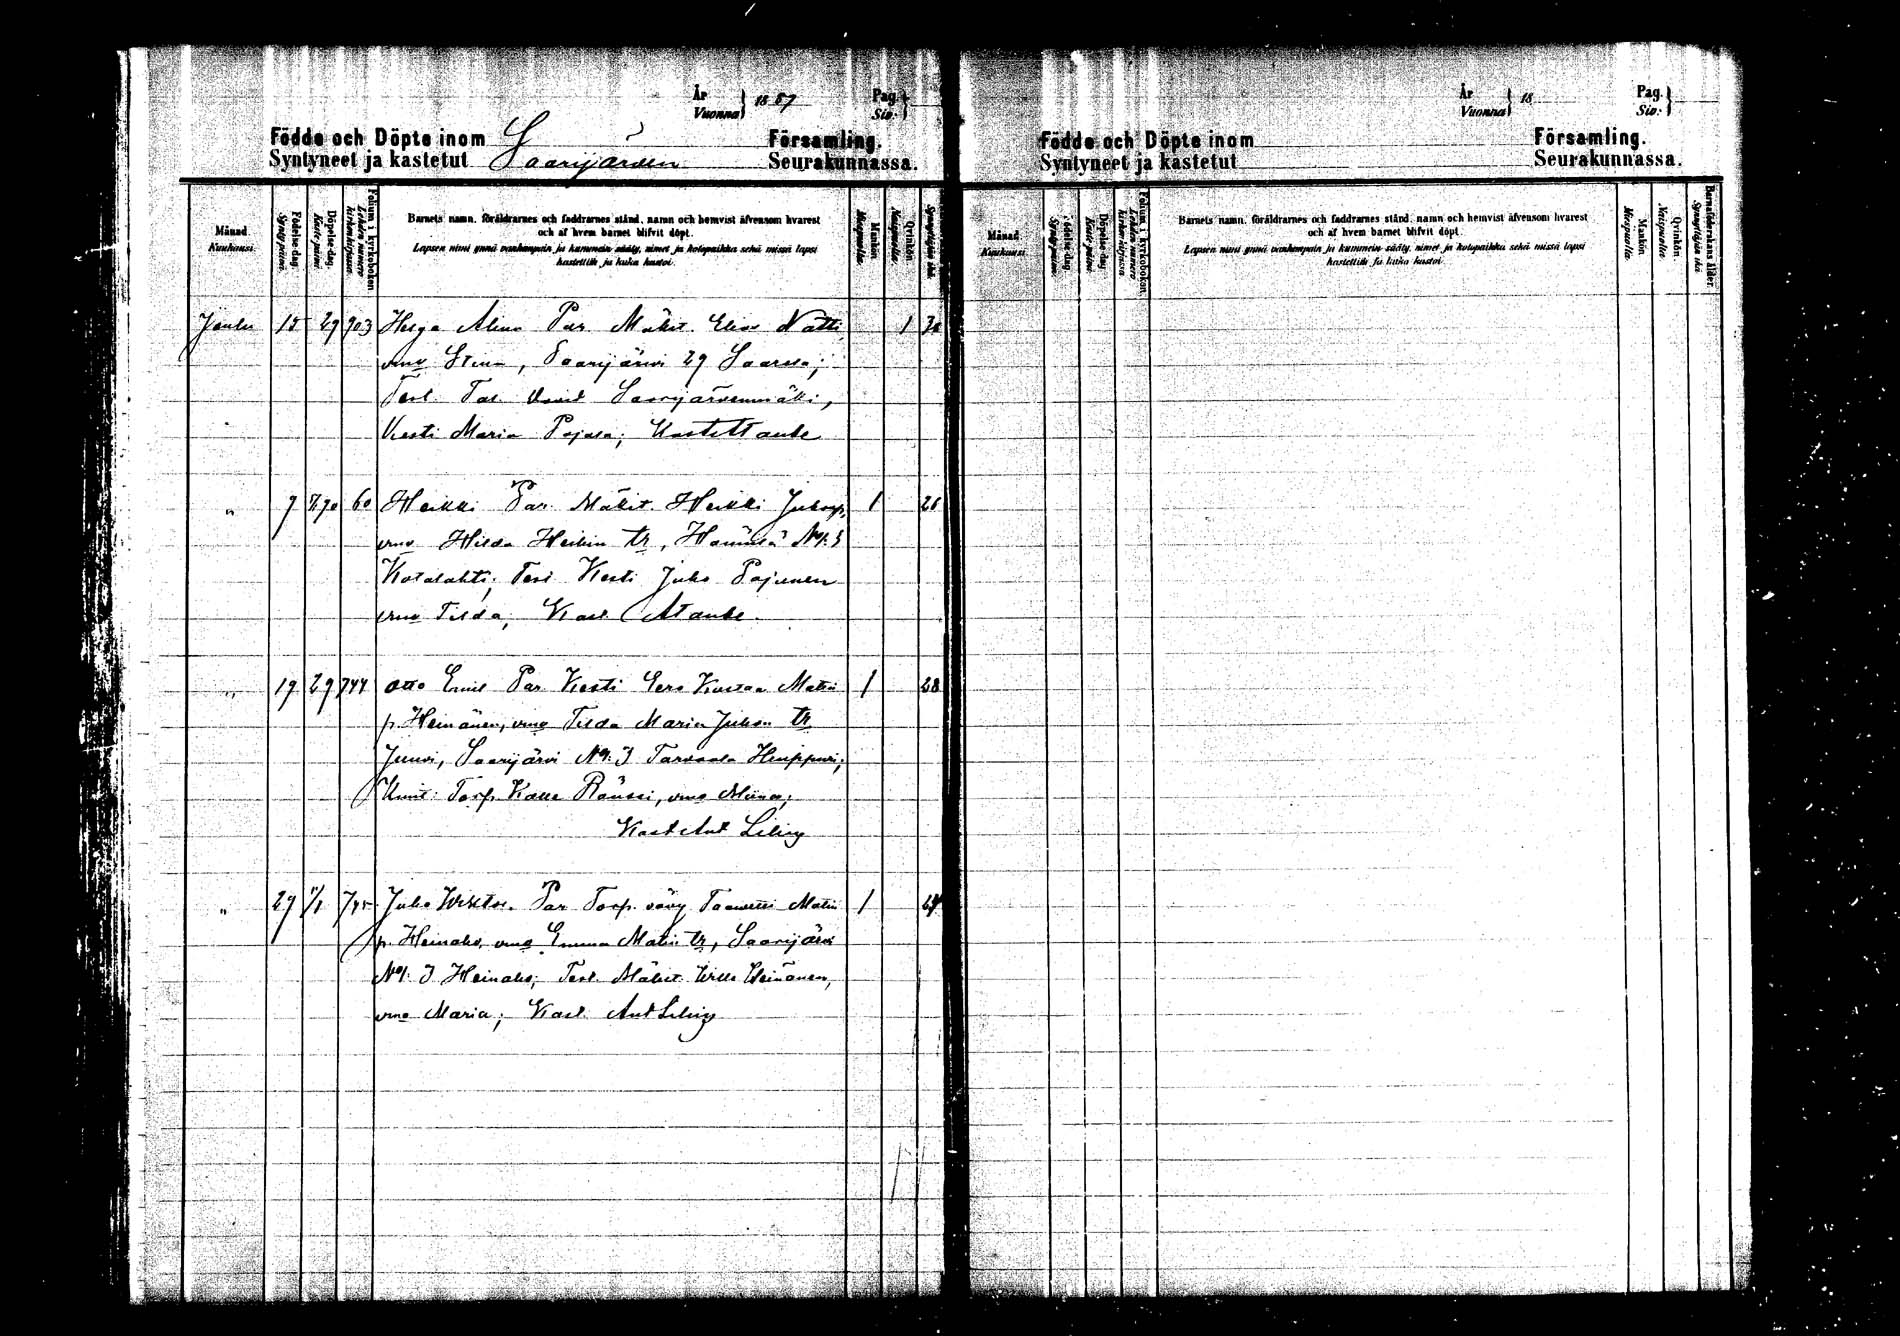 År
Vuonna } 1887
Pag.
Siv. }
Födde och Döpte inom
Syntyneet ja kastetut
Saarijärven
Församling.
Seurakunnassa.
Månad.
Kuukausi.
Födelse-dag.
Syntypäivä.
Döpelse-dag.
Kaste-päivä.
Folium i kyrkoboken.
Lehden numero
kirkonkirjassa.
Barnets namn, föräldrarnes och faddrarnes stånd, namn och hemvist äfvensom hvarest
och af hvem barnet blifvit döpt.
Lapsen nimi ynnä vanhempain ja kummein sääty, nimet ja kotopaikka sekä missä lapsi
kastettiin ja kuka kastoi.
Mankön.
Miespuolta.
Qvinkön.
Naispuolta.
Synnyttäjän ikä.
Joulu 15 29 903 Helga Alina Par. Mäkit. Elias Nätti,
vmo Stina, Saarijärvi 29
Test. Tal. David Saarijärvenmäki,
Kesti Maria Pajala;
" 7 60 Heikki Par. Mäkit. Heikki 1 26
vmo Hilda Heikin tr, No: 3
Kotalahti; Test Kesti Juho Pajunen
vmo Tilda; Kast
" 19 29 744 Otto Emil Par Kesti Eero Kustaa Matin 1 28
p. Heinänen, vmo Tilda Maria Juhon tr
Saarijärvi No: 3 Tarvaala
Torp. Kalle Räussi, vmo Miina;
Kast Ant Lilius
" 29 745 Juho Wiktor. Par Torp. vävy Taavetti Matin 1
p. Heinaho, vmo Emma Matin tr, Saarijärvi
No: 3 Heinaho; Test. Mäkit. Wille Heinänen,
vmo Maria; Kast. Ant Lilius
År
Vuonna } 18
Pag.
Siv. }
Födde och Döpte inom
Syntyneet ja kastetut
Församling.
Seurakunnassa.
Månad.
Kuukausi.
Födelse-dag.
Syntypäivä.
Döpelse-dag.
Kaste-päivä.
Folium i kyrkoboken.
Lehden numero
kirkon kirjassa.
Barnets namn, föräldrarnes och faddrarnes stånd, namn och hemvist äfvensom hvarest
och af hvem barnet blifvit döpt.
Lapsen nimi ynnä vanhempain ja kummein sääty, nimet ja kotopaikka sekä missä lapsi
kastettiin ja kuka kastoi.
Mankön.
Miespuolta.
Qvinkön.
Naispuolta.
Barnaföderskans ålder.
Synnyttäjän ikä.